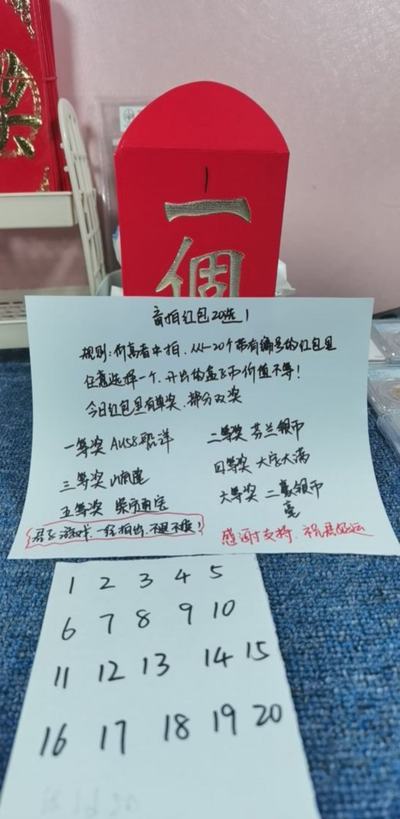 1
一個
盲拍红包20选1
规则:价高者中拍,从1-20个带有编号的红包里
任意选择一个,开出的盒子币价值不等!
今日红包里有单奖,部分双奖
一等奖 AU58船洋
二等奖 芬兰银币
三等奖
四等奖 大字大满
五等奖
六等奖 二毫银币
毫
一经拍出,不退不换!
感谢支持,祝君好运
1 2 3 4 5
6 7 8 9 10
11 12 13 14 15
16 17 18 19 20